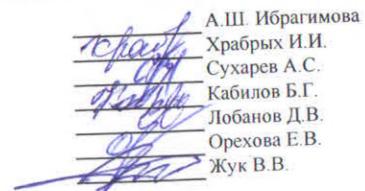 А.Ш. Ибрагимова
Храбрых И.И.
Сухарев А.С.
Кабилов Б.Г.
Лобанов Д.В.
Орехова Е.В.
Жук В.В.